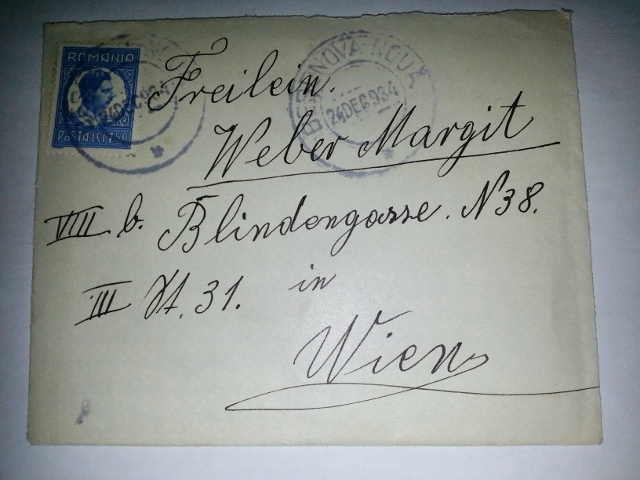 ROMANIA
POSTA LEI 7.50
NOVA-NOUĂ
24 DEC 934
Freilein.
Weber Margit
VIII. b. Blindengasse. N 38.
III St. 31. in
Wien